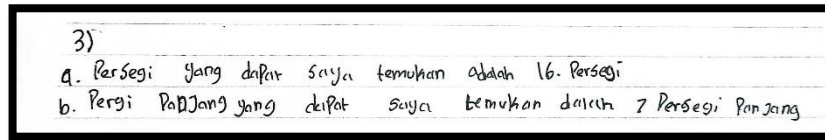 3)
a. Persegi yang dapat saya temukan adalah 16. Persegi
b. Pergi Panjang yang dapat saya temukan dalah 7 Persegi Panjang